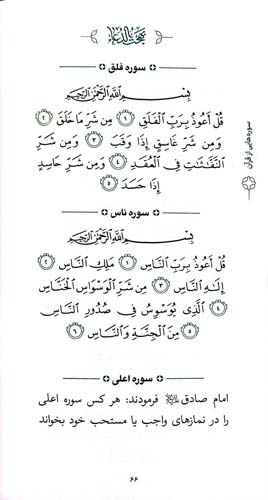 سوره فلق
بِسْمِ اللَّهِ الرَّحْمَٰنِ الرَّحِيمِ
قُلْ أَعُوذُ بِرَبِّ الْفَلَقِ ﴿١﴾ مِن شَرِّ مَا خَلَقَ ﴿٢﴾
وَمِن شَرِّ غَاسِقٍ إِذَا وَقَبَ ﴿٣﴾ وَمِن شَرِّ
النَّفَّاثَاتِ فِي الْعُقَدِ ﴿٤﴾ وَمِن شَرِّ حَاسِدٍ
إِذَا حَسَدَ ﴿٥﴾
سوره ناس
بِسْمِ اللَّهِ الرَّحْمَٰنِ الرَّحِيمِ
قُلْ أَعُوذُ بِرَبِّ النَّاسِ ﴿١﴾ مَلِكِ النَّاسِ ﴿٢﴾
إِلَٰهِ النَّاسِ ﴿٣﴾ مِن شَرِّ الْوَسْوَاسِ الْخَنَّاسِ
﴿٤﴾ الَّذِي يُوَسْوِسُ فِي صُدُورِ النَّاسِ
﴿٥﴾ مِنَ الْجِنَّةِ وَالنَّاسِ ﴿٦﴾
سوره اعلی
امام صادق فرمودند: هر کس سوره اعلی
را در نمازهای واجب یا مستحب خود بخواند
سوره هایی از قرآن
۶۶